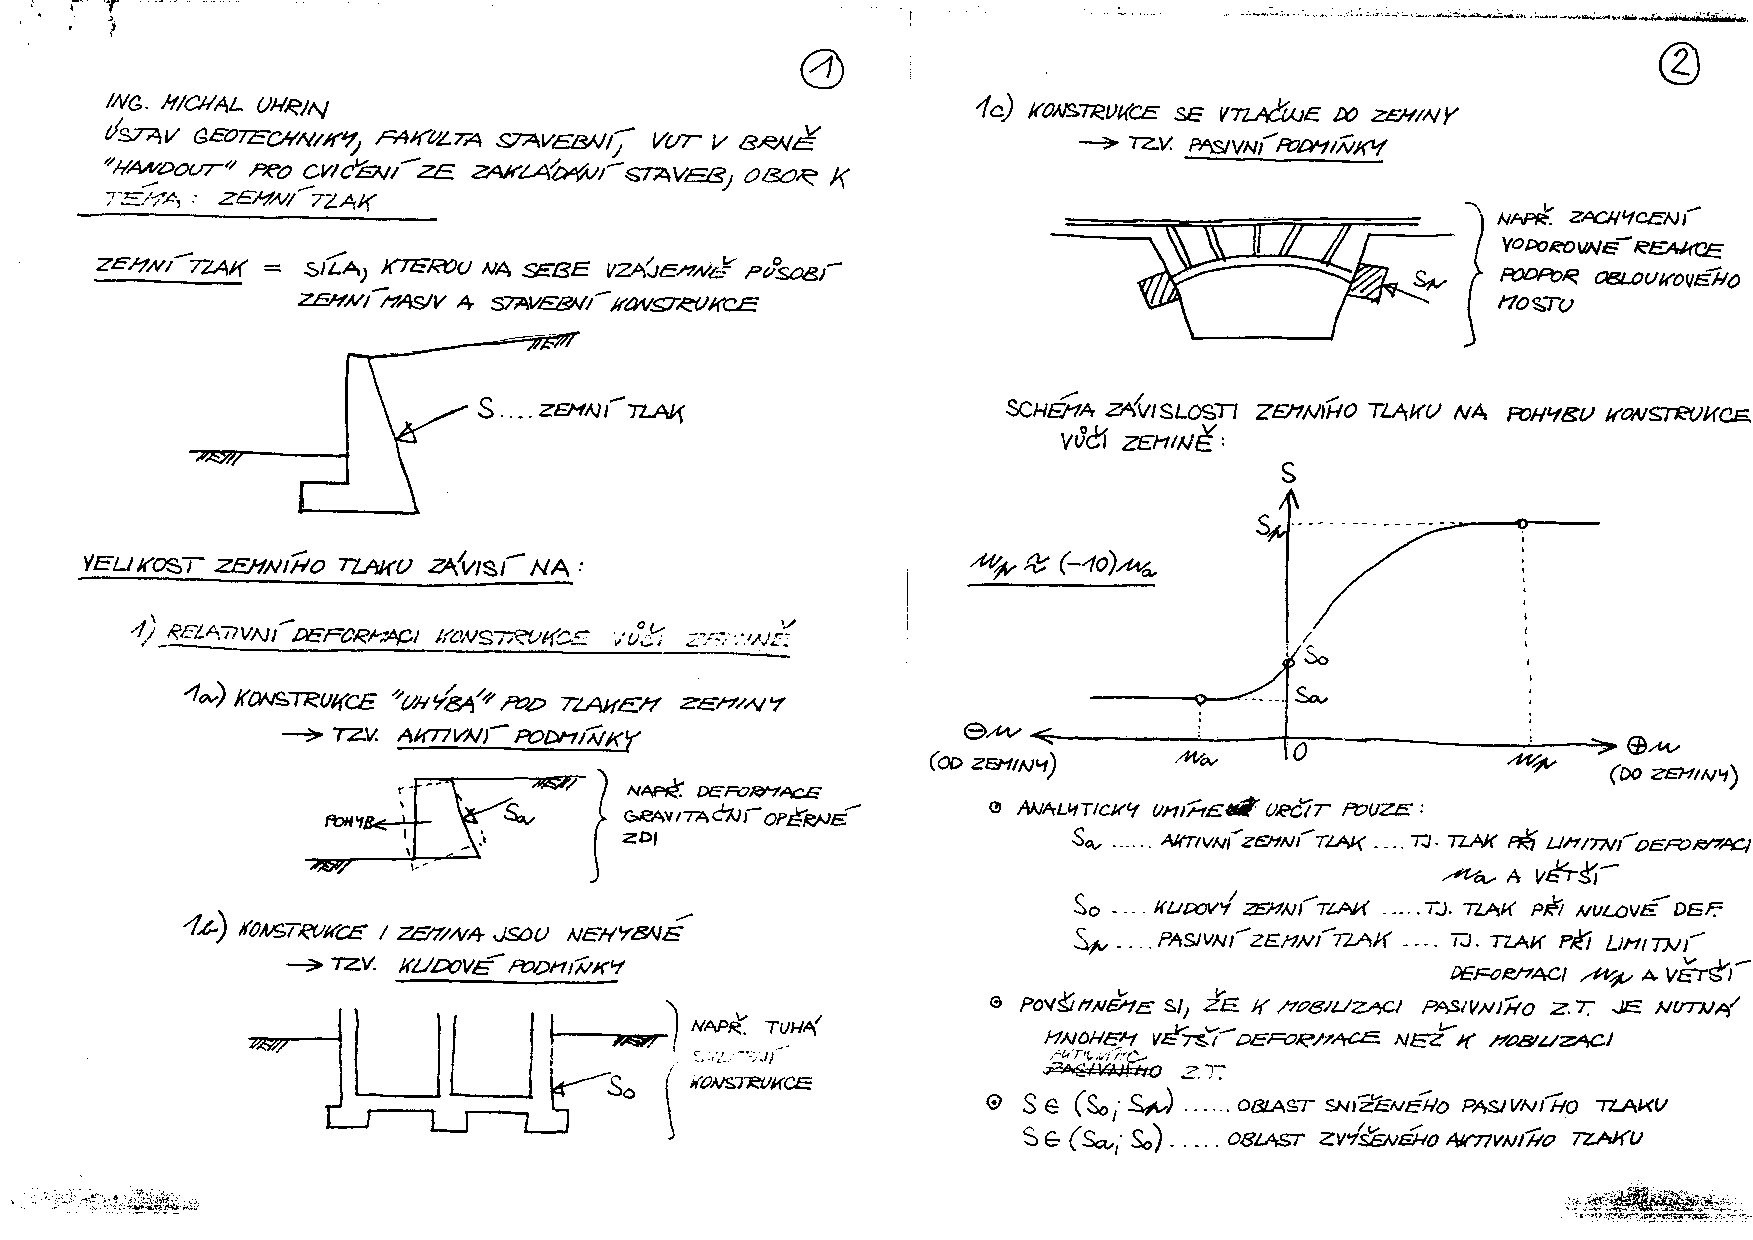 1
ING. MICHAL UHRIN
ÚSTAV GEOTECHNIKY, FAKULTA STAVEBNÍ, VUT V BRNĚ
"HANDOUT" PRO CVIČENÍ ZE ZAKLÁDÁNÍ STAVEB, OBOR K
TÉMA: ZEMNÍ TLAK
ZEMNÍ TLAK = SÍLA, KTEROU NA SEBE VZÁJEMNĚ PŮSOBÍ
ZEMNÍ MASIV A STAVEBNÍ KONSTRUKCE
S....ZEMNÍ TLAK
VELIKOST ZEMNÍHO TLAKU ZÁVISÍ NA:
1) RELATIVNÍ DEFORMACI KONSTRUKCE VŮČI ZEMINĚ
1a) KONSTRUKCE "UHÝBÁ" POD TLAKEM ZEMINY
→ TZV. AKTIVNÍ PODMÍNKY
POHYB
Sa
NAPŘ. DEFORMACE
GRAVITAČNÍ OPĚRNÉ
ZDI
1b) KONSTRUKCE I ZEMINA JSOU NEHYBNÉ
→ TZV. KLIDOVÉ PODMÍNKY
So
NAPŘ. TUHÁ
KONSTRUKCE
2
1c) KONSTRUKCE SE VTLAČUJE DO ZEMINY
→ TZV. PASIVNÍ PODMÍNKY
Sp
NAPŘ. ZACHYCENÍ
VODOROVNÉ REAKCE
PODPOR OBLOUKOVÉHO
MOSTU
SCHÉMA ZÁVISLOSTI ZEMNÍHO TLAKU NA POHYBU KONSTRUKCE
VŮČI ZEMINĚ:
S
Sp
up ≈ (-10)ua
So
Sa
⊖u
(OD ZEMINY)
ua
0
up
⊕u
(DO ZEMINY)
⊙ ANALYTICKY UMÍME URČIT POUZE:
Sa ...... AKTIVNÍ ZEMNÍ TLAK .... TJ. TLAK PŘI LIMITNÍ DEFORMACI
ua A VĚTŠÍ
So .... KLIDOVÝ ZEMNÍ TLAK ..... TJ. TLAK PŘI NULOVÉ DEF.
Sp .... PASIVNÍ ZEMNÍ TLAK .... TJ. TLAK PŘI LIMITNÍ
DEFORMACI up A VĚTŠÍ
⊙ POVŠIMNĚME SI, ŽE K MOBILIZACI PASIVNÍHO Z.T. JE NUTNÁ
MNOHEM VĚTŠÍ DEFORMACE NEŽ K MOBILIZACI
AKTIVNÍHO
PASIVNÉHO Z.T.
⊙ S∈(So; Sp) ...... OBLAST SNÍŽENÉHO PASIVNÍHO TLAKU
S∈(Sa; So) ...... OBLAST ZVÝŠENÉHO AKTIVNÍHO TLAKU